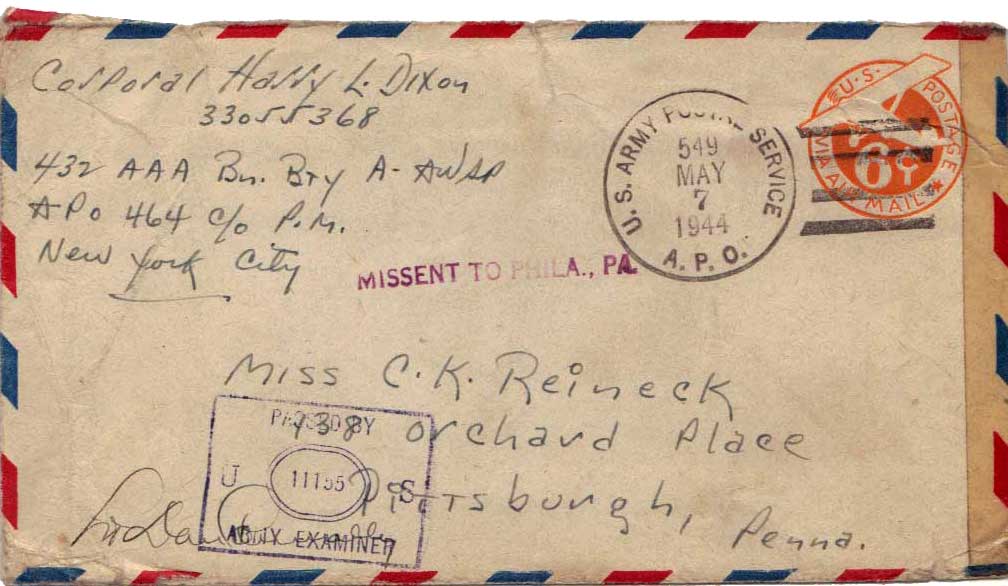 Corporal Harry L. Dixon
33055368
432 AAA Bn. Bty A- AWSP
APO 464 c/o P.M.
New York City
U.S. ARMY POSTAL SERVICE
549
MAY
7
1944
A.P.O.
U.S. POSTAGE
6¢
VIA AIR MAIL
MISSENT TO PHILA., PA.
Miss C.K. Reineck
938 Orchard Place
Pittsburgh,
Penna.
PASSED BY
U 11155 S
ARMY EXAMINER